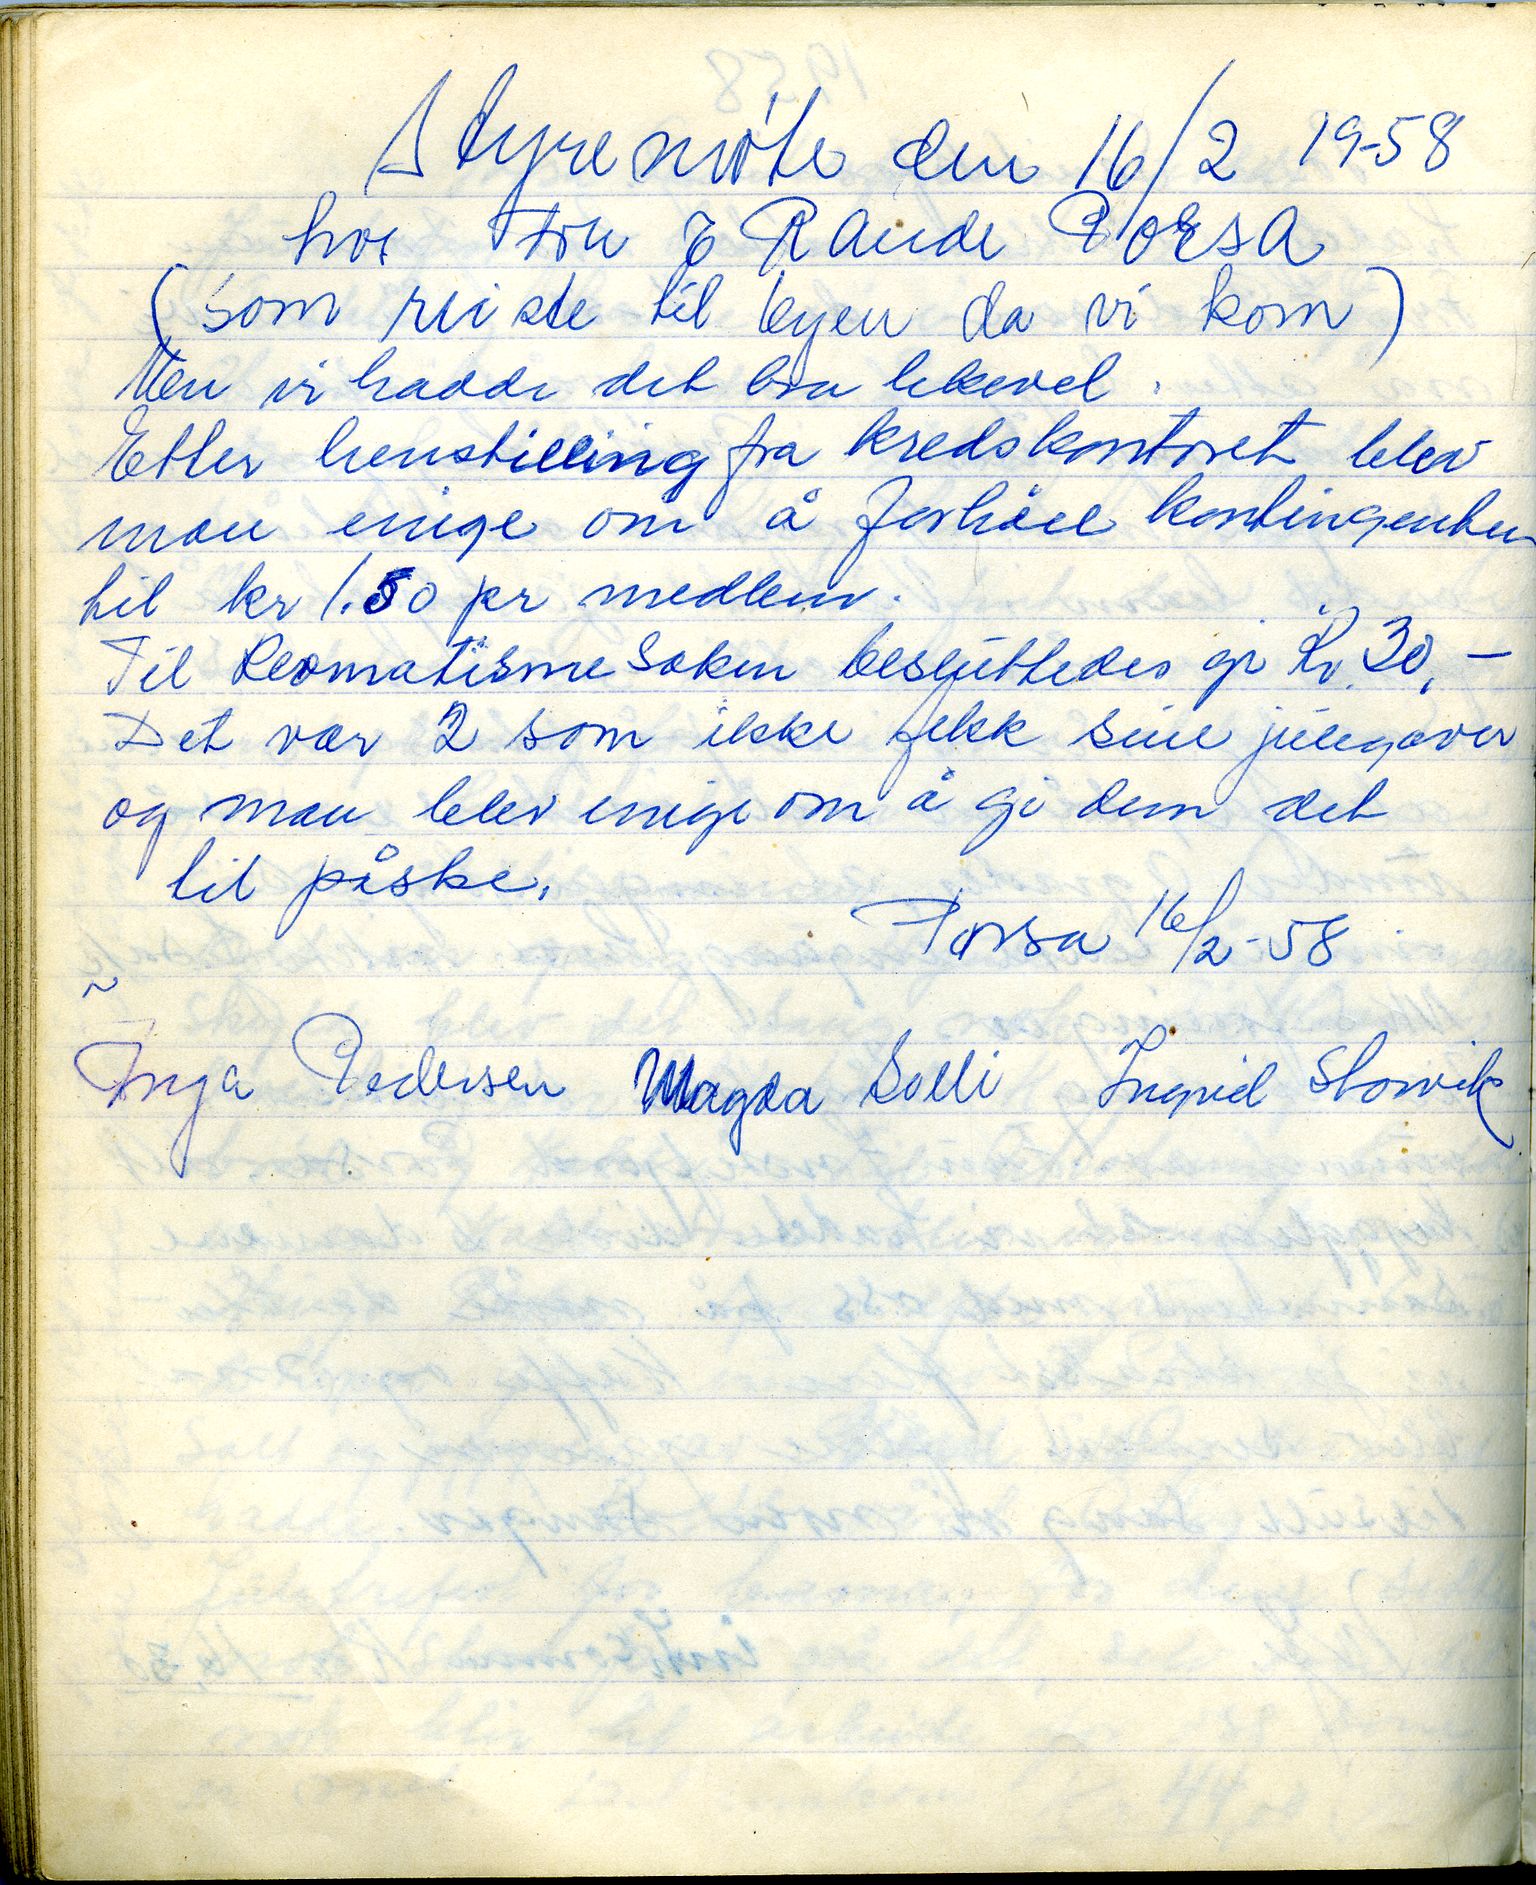 Styremøte den 16/2 19-58
hos fru E Rande Porsa
(som reiste til byen da vi kom)
Men vi hadde det bra likevel.
Etter henstilling fra kredskontoret blev
man enige om å forhåie kontingenten
til kr 1.50 pr medlem.
Til Revmatisme Saken besluttedes gi kr. 30,-
Det var 2 som ikke fikk sine julegaver
og man blev enige om å gi dem det
til påske.
Porsa 16/2-58
Inga Pedersen Magda Solli Ingrid Storvik